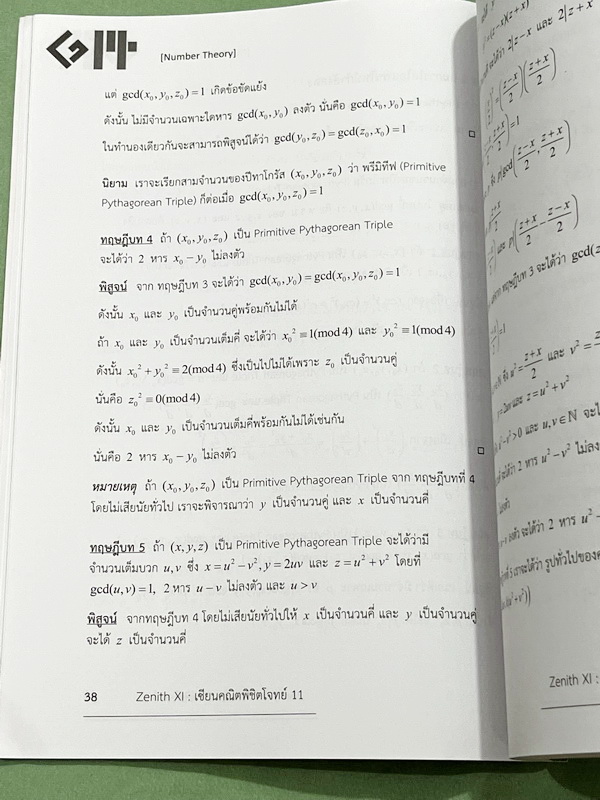 [Number Theory]
แต่ gcd(x₀, y₀, z₀) = 1 เกิดข้อขัดแย้ง
ดังนั้น ไม่มีจำนวนเฉพาะใดหาร gcd(x₀, y₀) ลงตัว นั่นคือ gcd(x₀, y₀) = 1
ในทำนองเดียวกันจะสามารถพิสูจน์ได้ว่า gcd(y₀, z₀) = gcd(z₀, x₀) = 1 □
นิยาม เราจะเรียกสามจำนวนของปีทาโกรัส (x₀, y₀, z₀) ว่า พรีมิทีฟ (Primitive
Pythagorean Triple) ก็ต่อเมื่อ gcd(x₀, y₀, z₀) = 1
ทฤษฎีบท 4 ถ้า (x₀, y₀, z₀) เป็น Primitive Pythagorean Triple
จะได้ว่า 2 หาร x₀ − y₀ ไม่ลงตัว
พิสูจน์ จาก ทฤษฎีบท 3 จะได้ว่า gcd(x₀, y₀) = gcd(x₀, y₀, z₀) = 1
ดังนั้น x₀ และ y₀ เป็นจำนวนคู่พร้อมกันไม่ได้
ถ้า x₀ และ y₀ เป็นจำนวนเต็มคี่ จะได้ว่า x₀² ≡ 1(mod 4) และ y₀² ≡ 1(mod 4)
ดังนั้น x₀² + y₀² ≡ 2(mod 4) ซึ่งเป็นไปไม่ได้เพราะ z₀ เป็นจำนวนคู่
นั่นคือ z₀² ≡ 0(mod 4)
ดังนั้น x₀ และ y₀ เป็นจำนวนเต็มคี่พร้อมกันไม่ได้เช่นกัน
นั่นคือ 2 หาร x₀ − y₀ ไม่ลงตัว □
หมายเหตุ ถ้า (x₀, y₀, z₀) เป็น Primitive Pythagorean Triple จาก ทฤษฎีบทที่ 4
โดยไม่เสียนัยทั่วไป เราจะพิจารณาว่า y เป็นจำนวนคู่ และ x เป็นจำนวนคี่
ทฤษฎีบท 5 ถ้า (x, y, z) เป็น Primitive Pythagorean Triple จะได้ว่ามี
จำนวนเต็มบวก u, v ซึ่ง x = u² − v², y = 2uv และ z = u² + v² โดยที่
gcd(u, v) = 1, 2 หาร u − v ไม่ลงตัว และ u > v
พิสูจน์ จากทฤษฎีบท 4 โดยไม่เสียนัยทั่วไปให้ x เป็นจำนวนคี่ และ y เป็นจำนวนคู่
จะได้ z เป็นจำนวนคี่
38 Zenith XI : เซียนคณิตพิชิตโจทย์ 11
(z−x)(z+x)
ได้ว่า 2|z−x และ 2|z+x
= ((z−x)/2)((z+x)/2)
gcd((z−x)/2, (z+x)/2)
ทฤษฎีบท 3 จะได้ว่า gcd(
u² = (z+x)/2 และ v² =
y = 2uv และ z = u² + v²
u² − v² > 0 และ u, v ∈ ℕ
จะได้ว่า 2 หาร u² − v² ไม่ลง
จะได้ว่า 2 หาร u² −
Zenith XI :